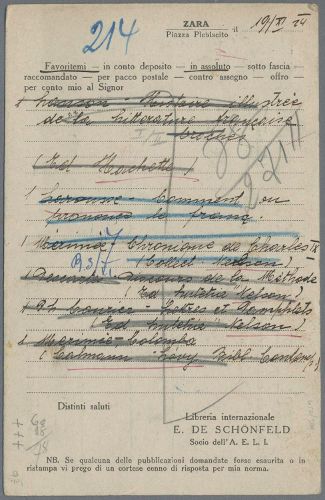 214
ZARA
Piazza Plebiscito li 19/XI 24
Favoritemi — in conto deposito — in assoluto — sotto fascia
raccomandato — per pacco postale — contro assegno — offro
per conto mio al Signor
1 Lanson - Histoire illustrée
de la littérature française
I/II
(Ed Hachette)
1 - Comment on
prononce le franç.
1 Mérimée Chronique de Charles IX
(Collect Nelson)
1 Descartes - Discours de la Méthode
(Ed Nelson)
1 Courier - Lettres et Pamphlets
(Ed Nelson)
1 Mérimée - Colomba
(Calmann Levy Bibl Contemp.)
Distinti saluti
Libreria internazionale
E. DE SCHÖNFELD
Socio dell'A. E. L. I.
NB. Se qualcuna delle pubblicazioni domandate forse esaurita o in
ristampa vi prego di un cortese cenno di risposta per mia norma.